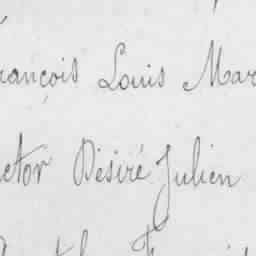 rançois Louis Mar
ctor Désiré Julien